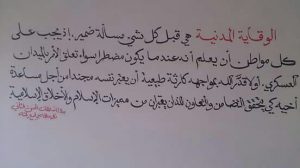 الوقاية المدنية هي قبل كل شيئ مسألة ضمير. إذ يجب على
كل مواطن أن يعلم أنه عندما يكون مضطرا سواء تعلق الأمر بالميدان
العسكري. أو لا قدر الله يواجه كارثة طبيعية أن يعتبر نفسه مجندا من أجل مساعدة
أخيه كي يتحقق التضامن والتعاون اللذان يعتبران من مميزات الإسلام والأخلاق الإسلامية